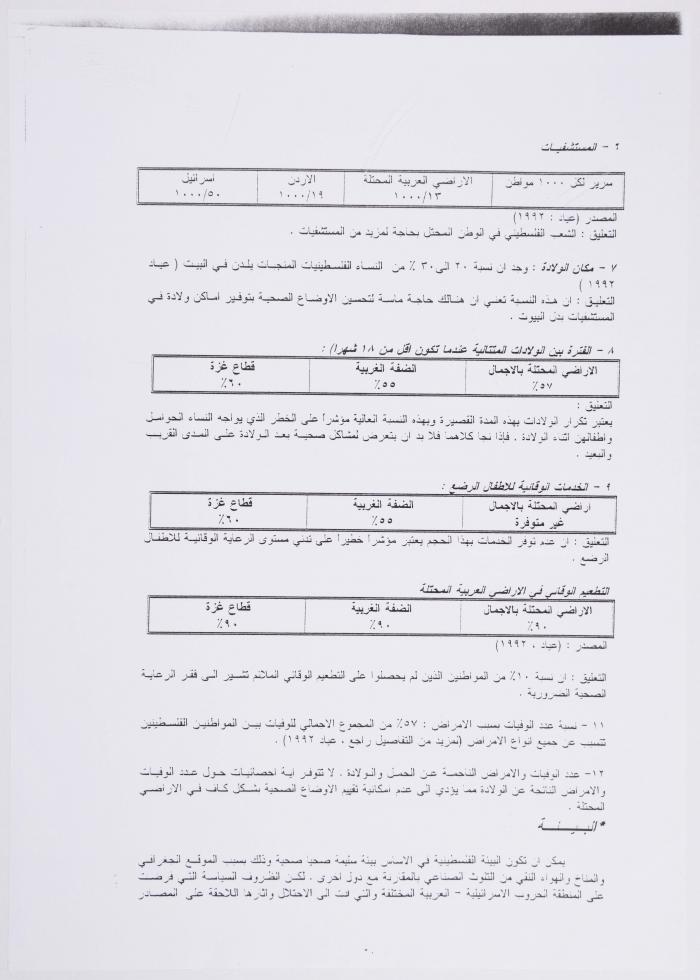 ٦ - المستشفيات
سرير لكل ١٠٠٠ مواطن الاراضي العربية المحتلة الاردن اسرائيل
١٠٠٠/١٣ ١٠٠٠/١٩ ١٠٠٠/٥٠
المصدر (عياد : ١٩٩٢)
التعليق : الشعب الفلسطيني في الوطن المحتل بحاجة لمزيد من المستشفيات .
٧ - مكان الولادة : وجد ان نسبة ٢٠ الى ٣٠ ٪ من النساء الفلسطينيات المنجبات يلدن في البيت ( عياد
١٩٩٢ )
التعليق : ان هذه النسبة تعني ان هنالك حاجة ماسة لتحسين الاوضاع الصحية بتوفير اماكن ولادة في
المستشفيات بدل البيوت .
٨ - الفترة بين الولادات المتتالية عندما تكون اقل من ١٨ شهرا) :
الاراضي المحتلة بالاجمال الضفة الغربية قطاع غزة
٥٧٪ ٥٥٪ ٦٠٪
التعليق :
يعتبر تكرار الولادات بهذه المدة القصيرة وبهذه النسبة العالية مؤشراً على الخطر الذي يواجه النساء الحوامل
واطفالهن اثناء الولادة . فإذا نجا كلاهما فلا بد ان يتعرض لمشاكل صحية بعد الولادة على المدى القريب
والبعيد .
٩ - الخدمات الوقائية للاطفال الرضع :
اراضي المحتلة بالاجمال الضفة الغربية قطاع غزة
غير متوفرة ٥٥٪ ٦٠٪
التعليق : ان عدم توفر الخدمات بهذا الحجم يعتبر مؤشراً خطيراً على تدني مستوى الرعاية الوقائية للاطفال
الرضع .
التطعيم الوقائي في الاراضي العربية المحتلة
الاراضي المحتلة بالاجمال الضفة الغربية قطاع غزة
٩٠٪ ٩٠٪ ٩٠٪
المصدر : (عياد ، ١٩٩٢)
التعليق : ان نسبة ١٠٪ من المواطنين الذين لم يحصلوا على التطعيم الوقائي الملائم تشير الى فقر الرعاية
الصحية الضرورية .
١١ - نسبة عدد الوفيات بسبب الامراض : ٥٧٪ من المجموع الاجمالي للوفيات بين المواطنين الفلسطينيين
تتسبب عن جميع انواع الامراض (لمزيد من التفاصيل راجع ، عياد ١٩٩٢) .
١٢- عدد الوفيات والامراض الناجمة عن الحمل والولادة . لا تتوفر اية احصائيات حول عدد الوفيات
والامراض الناتجة عن الولادة مما يؤدي الى عدم امكانية تقييم الاوضاع الصحية بشكل كاف في الاراضي
المحتلة .
* البيئة
يمكن ان تكون البيئة الفلسطينية في الاساس بيئة سليمة صحيا صحية وذلك بسبب الموقع الجغرافي
والمناخ والهواء النقي من التلوث الصناعي بالمقارنة مع دول اخرى . لكن الظروف السياسة التي فرضت
على المنطقة الحروب الاسرائيلية - العربية المختلفة والتي ادت الى الاحتلال واثارها اللاحقة على المصادر